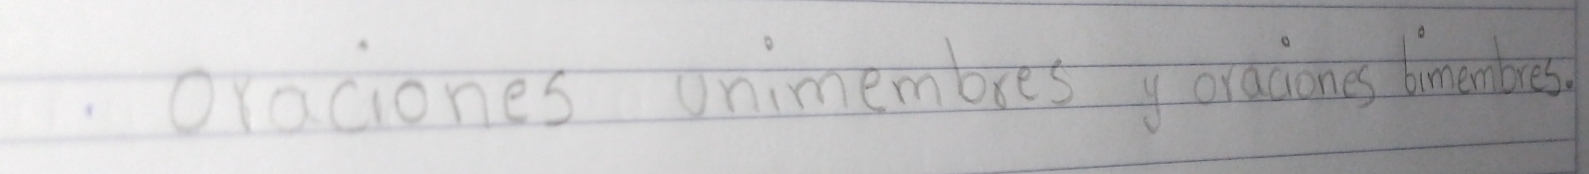 Oraciones unimembres y oraciones bimembres.